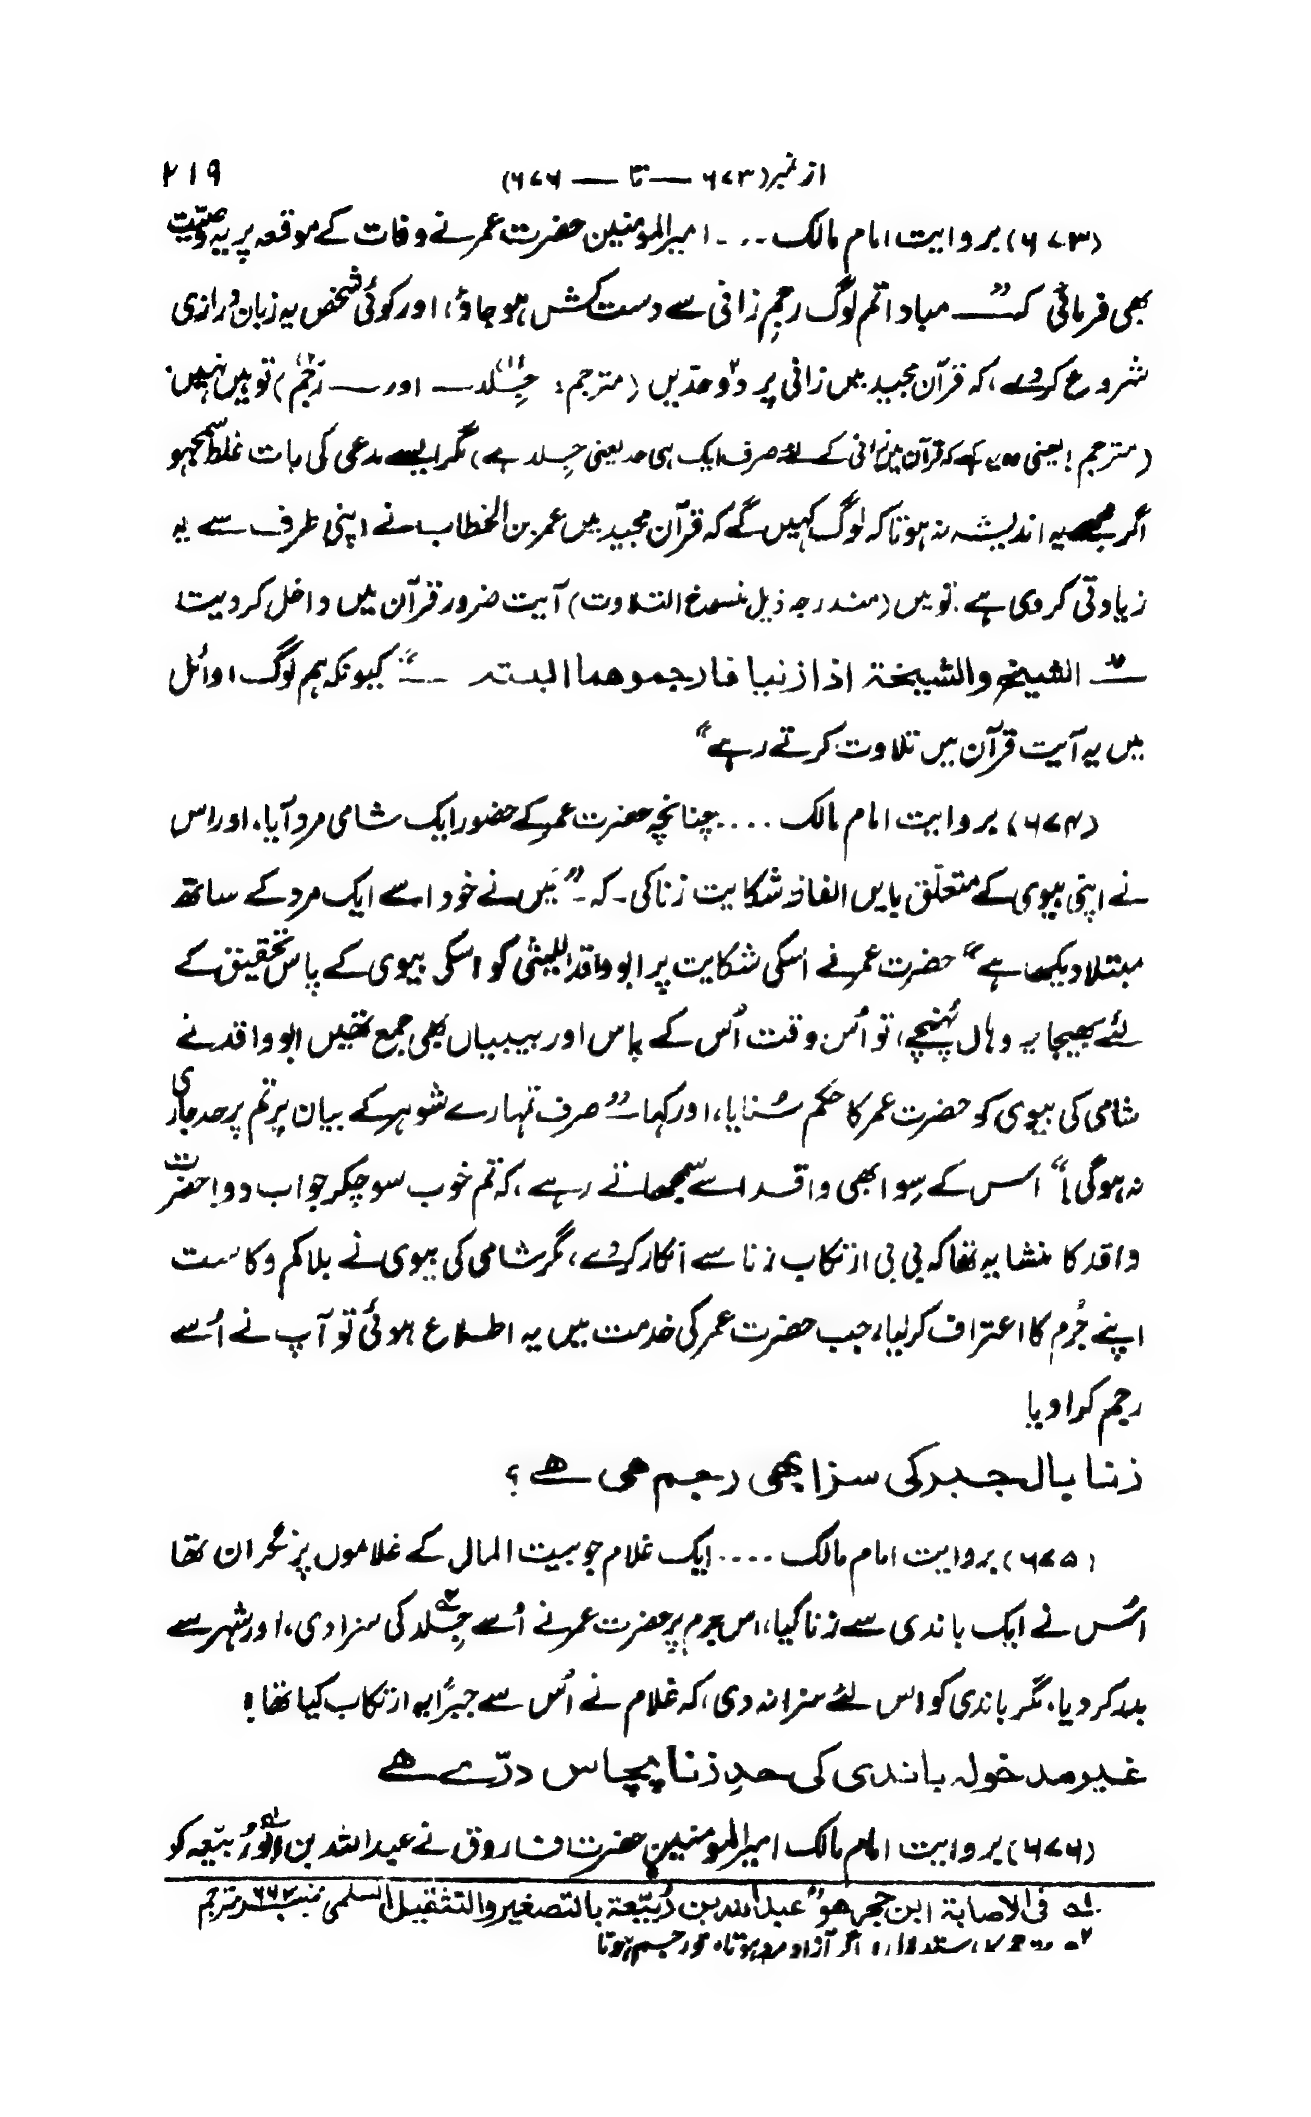 از نمبر (۶۷۳ — تا — ۶۷۶) ۲۱۹
(۶۷۳) بروایت امام مالک ... امیرالمومنین حضرت عمر نے وفات کے موقعہ پر یہ وصیّت
بھی فرمائی کہ — مبادا تم لوگ رجمِ زانی سے دست کش ہو جاؤ، اور کوئی شخص یہ زبان درازی
شروع کر دے، کہ قرآن مجید میں زانی پر دو۲ حدّیں (مترجم: جِلد(۱) — اور — رجم(۲)) تو ہیں نہیں
(مترجم! یعنی وہ کہے کہ قرآن میں زانی کے لئے صرف ایک ہی حد یعنی جِلد ہے) مگر ایسے مدعی کی بات غلط سمجھو
اگر مجھے یہ اندیشہ نہ ہوتا کہ لوگ کہیں گے کہ قرآن مجید میں عمر بن الخطاب نے اپنی طرف سے یہ
زیادتی کر دی ہے، تو میں (مندرجہ ذیل منسوخ التلاوت) آیت ضرور قرآن میں داخل کر دیتا
— الشیخ والشیخة اذا زنیا فارجموهما البتہ —" کیونکہ ہم لوگ اوائل
میں یہ آیت قرآن میں تلاوت کرتے رہے"
(۶۷۴) بروایت امام مالک .... چنانچہ حضرت عمر کے حضور ایک شامی مرد آیا، اور اس
نے اپنی بیوی کے متعلّق بایں الفاظ شکایت زنا کی۔ کہ۔ "میں نے خود اسے ایک مرد کے ساتھ
مبتلا دیکھا ہے" حضرت عمر نے اسکی شکایت پر ابو واقد اللیثی کو اسکی بیوی کے پاس تحقیق کے
لئے بھیجا یہ وہاں پُہنچے، تو اُس وقت اُس کے پاس اور بیبیاں بھی جمع تھیں ابو واقد نے
شامی کی بیوی کو حضرت عمر کا حکم سُنایا، اور کہا — "صرف تمہارے شوہر کے بیان پر تم پر حد جاری
نہ ہوگی!" اس کے سوا بھی واقد اسے سمجھاتے رہے، کہ تم خوب سوچکر جواب دو! حضرت
واقد کا منشا یہ تھا کہ بی بی ارتکاب زنا سے انکار کر دے، مگر شامی کی بیوی نے بلا کم و کاست
اپنے جُرم کا اعتراف کر لیا، جب حضرت عمر کی خدمت میں یہ اطلاع ہوئی تو آپ نے اُسے
رجم کرا دیا
زنا بالجبر کی سزا بھی رجم ہی ہے ؟
(۶۷۵) بروایت امام مالک .... ایک غلام جو بیت المال کے غلاموں پر نگران تھا
اُس نے ایک باندی سے زنا کیا، اس جرم پر حضرت عمر نے اُسے جِلد۲ کی سزا دی، اور شہر سے
بدر کر دیا، مگر باندی کو اس لئے سزا نہ دی، کہ غلام نے اُس سے جبرًا یہ ارتکاب کیا تھا!
غیر مدخولہ باندی کی حدِ زنا پچاس درّے ہے
(۶۷۶) بروایت امام مالک امیرالمومنین حضرت فاروق نے عبداللہ بن ابو رُبیّعہ کو
۱؎ فی الاصابة ابن حجر هو "عبداللہ بن رُبیّعة بالتصغیر والتثقیل السلمی نمبر ۴۶۶۷ مترجم
۲؎ اگر آزاد مرد ہوتا، تو رجم ہوتا